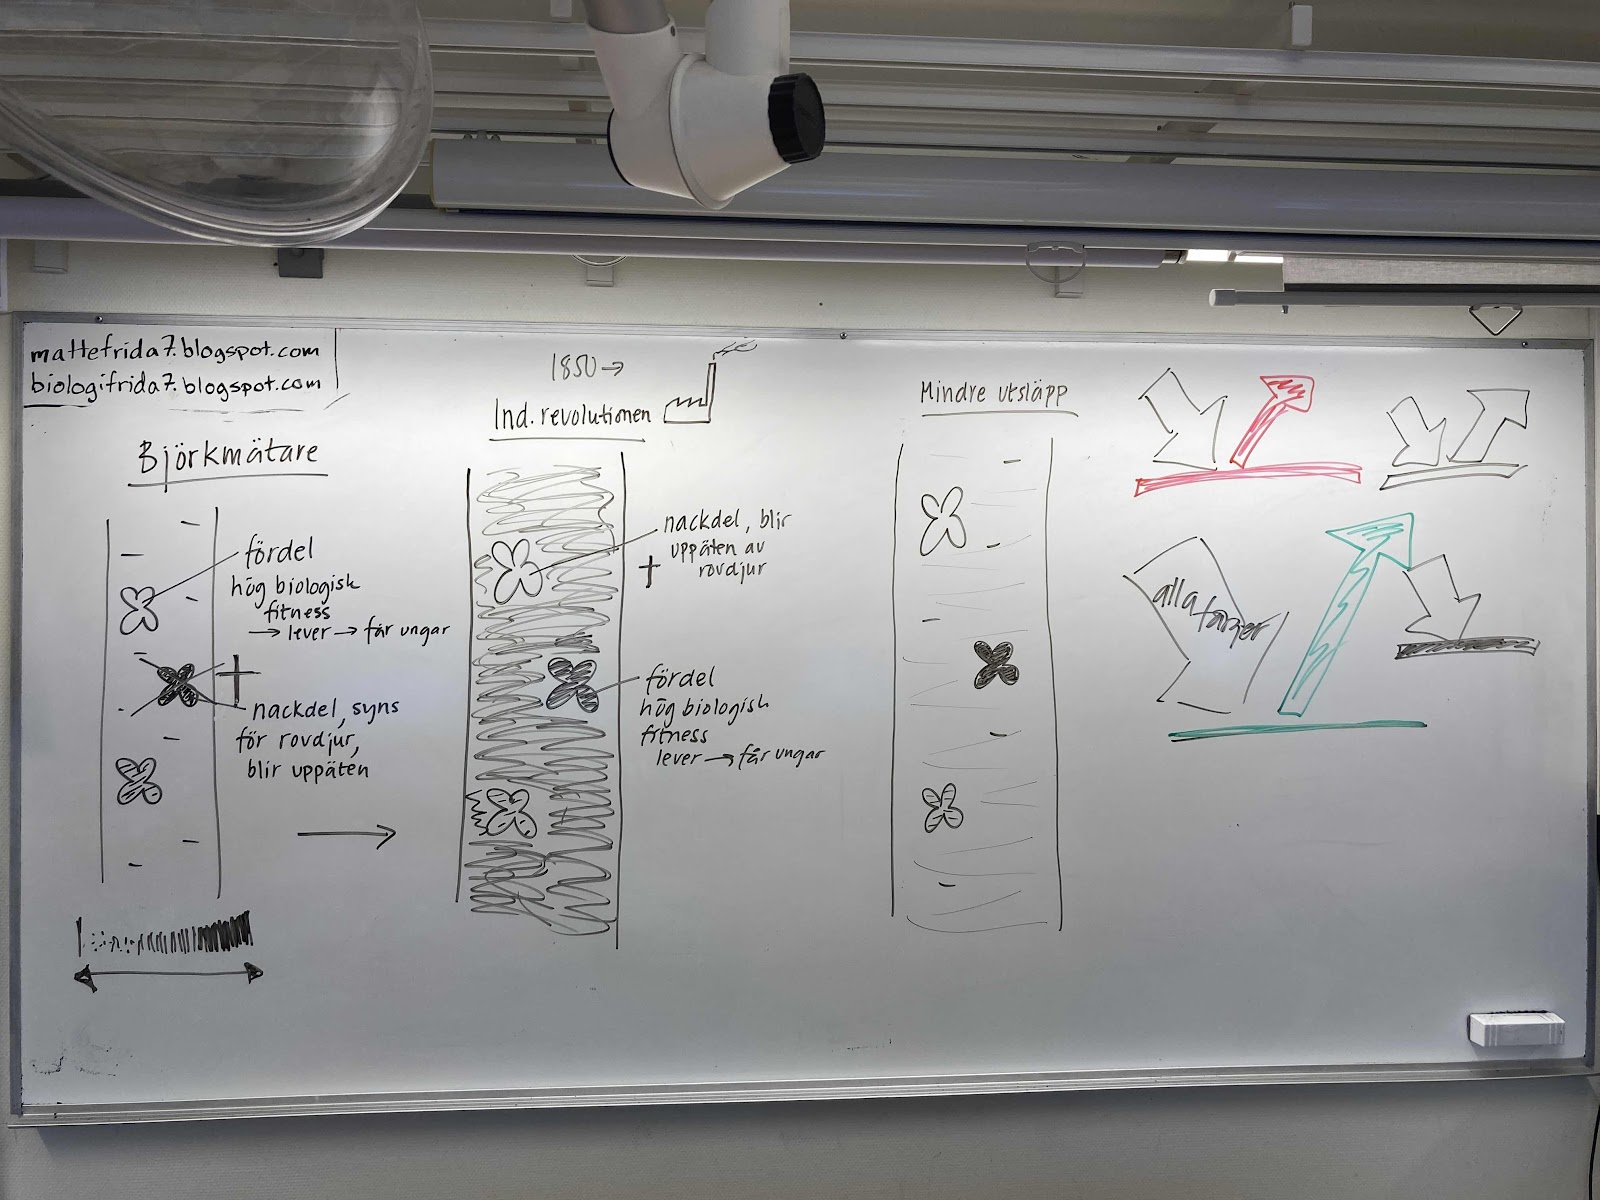 mattefrida7.blogspot.com
biologifrida7.blogspot.com
Björkmätare
fördel
hög biologisk
fitness
→ lever → får ungar
nackdel, syns
för rovdjur,
blir uppäten
1850 →
Ind. revolutionen
nackdel, blir
uppäten av
rovdjur
fördel
hög biologisk
fitness
lever → får ungar
Mindre utsläpp
alla
färger